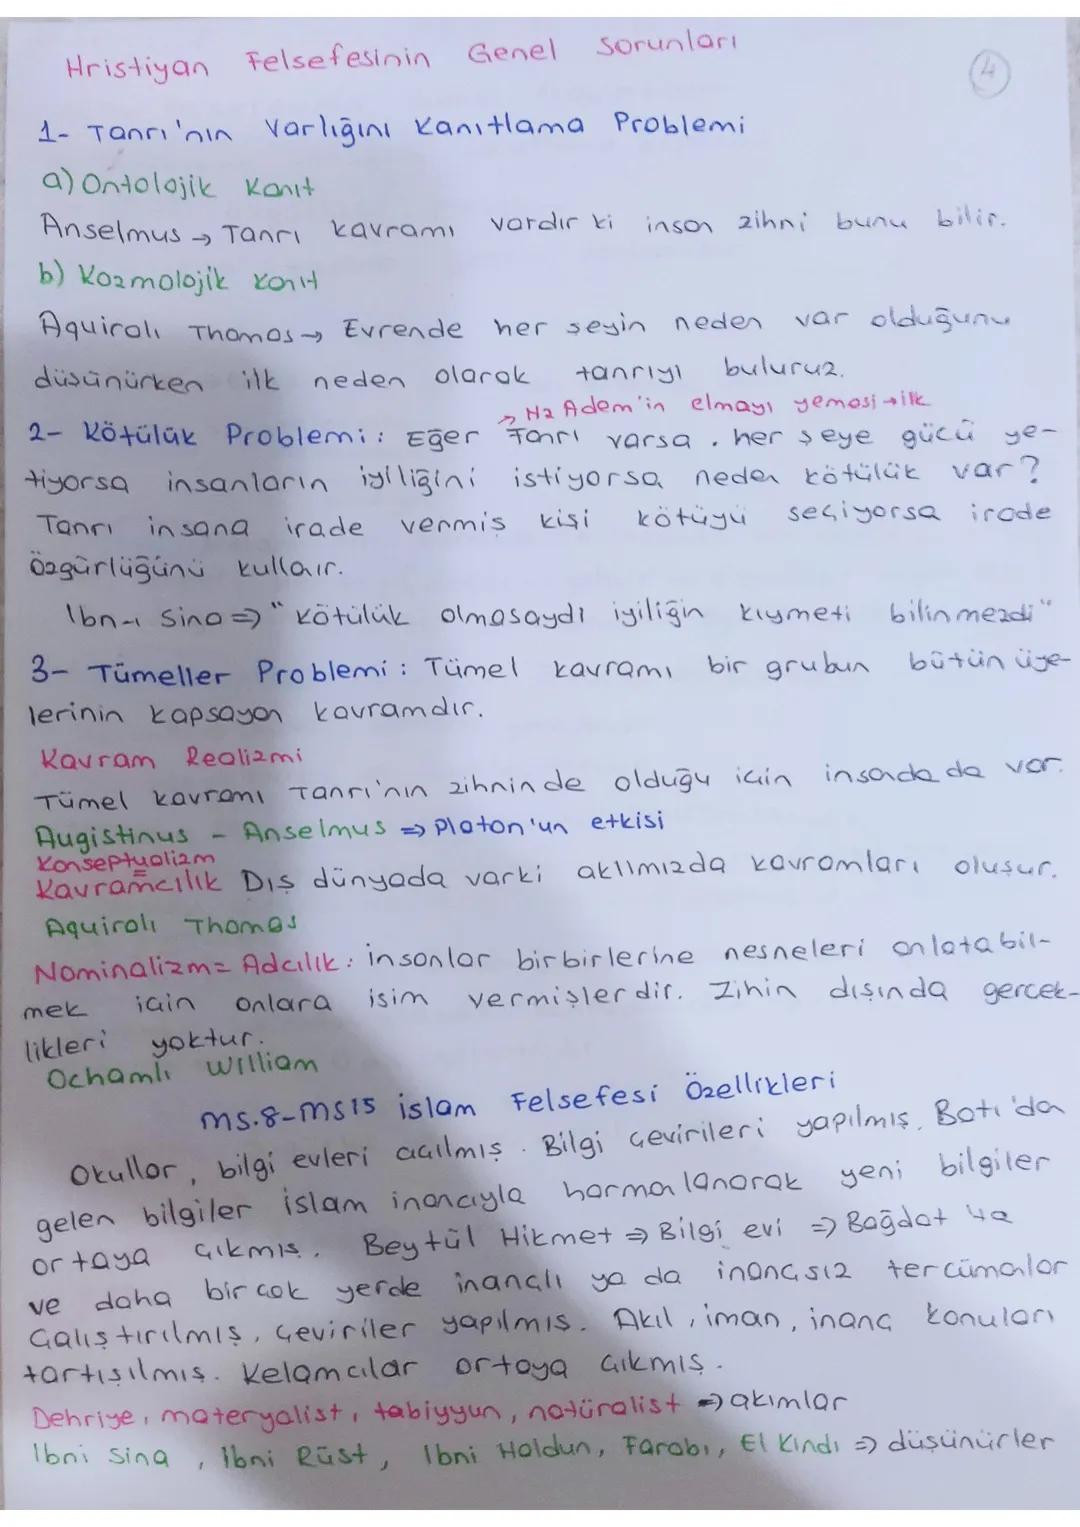 Hristiyan Felsefesinin Genel Sorunları
4
1- Tanrı'nın Varlığını Kanıtlama Problemi
a) Ontolojik Kanıt
Anselmus → Tanrı kavramı vardır ki insan zihni bunu bilir.
b) Kozmolojik Kanıt
Aquirolı Thomas → Evrende her şeyin neden var olduğunu
düşünürken ilk neden olarak tanrıyı buluruz.
→ Hz Adem'in elmayı yemesi → ilk
2- Kötülük Problemi: Eğer Tanrı varsa. her şeye gücü ye-
tiyorsa insanların iyiliğini istiyorsa neden kötülük var?
Tanrı insana irade vermiş kişi kötüyü seçiyorsa irade
özgürlüğünü kullaır.
Ibn-ı Sina ⇒ "Kötülük olmasaydı iyiliğin kıymeti bilinmezdi"
3- Tümeller Problemi: Tümel kavramı bir grubun bütün üye-
lerinin kapsayan kavramdır.
Kavram Realizmi
Tümel kavramı Tanrı'nın zihninde olduğu için insada da var.
Augistinus - Anselmus ⇒ Platon'un etkisi
Konseptualizm
=
Kavramcılık Dış dünyada varki aklımızda kavramları oluşur.
Aquirolı Thomas
Nominalizm = Adcılık: insanlar birbirlerine nesneleri anlatabil-
mek için onlara isim vermişlerdir. Zihin dışında gerçek-
likleri yoktur.
Ochamlı William
ms.8-ms15 islam Felsefesi Özellikleri
Okullar, bilgi evleri açılmış. Bilgi çevirileri yapılmış. Batı'da
gelen bilgiler islam inancıyla harmanlanarak yeni bilgiler
ortaya çıkmış. Beytül Hikmet ⇒ Bilgi evi ⇒ Bağdat
ve daha birçok yerde inançlı ya da inançsız tercümanlar
çalıştırılmış, çeviriler yapılmış. Akıl, iman, inanç konuları
tartışılmış. Kelamcılar ortaya çıkmış.
Dehriye, materyalist, tabiyyun, natüralist ⇒ akımlar
Ibni Sina, Ibni Rüst, Ibni Haldun, Farabı, El Kındı ⇒ düşünürler